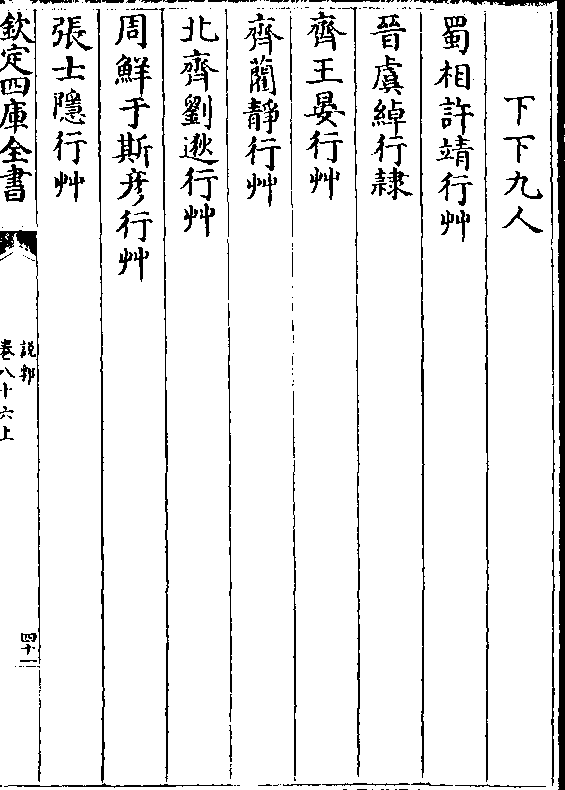 下下九人
蜀相許靖行艸
晉虞綽行隸
齊王晏行艸
齊藺靜行艸
北齊劉逖行艸
周鮮于斯彥行艸
張士隱行艸
欽定四庫全書
說郛
卷八十六上
四十一